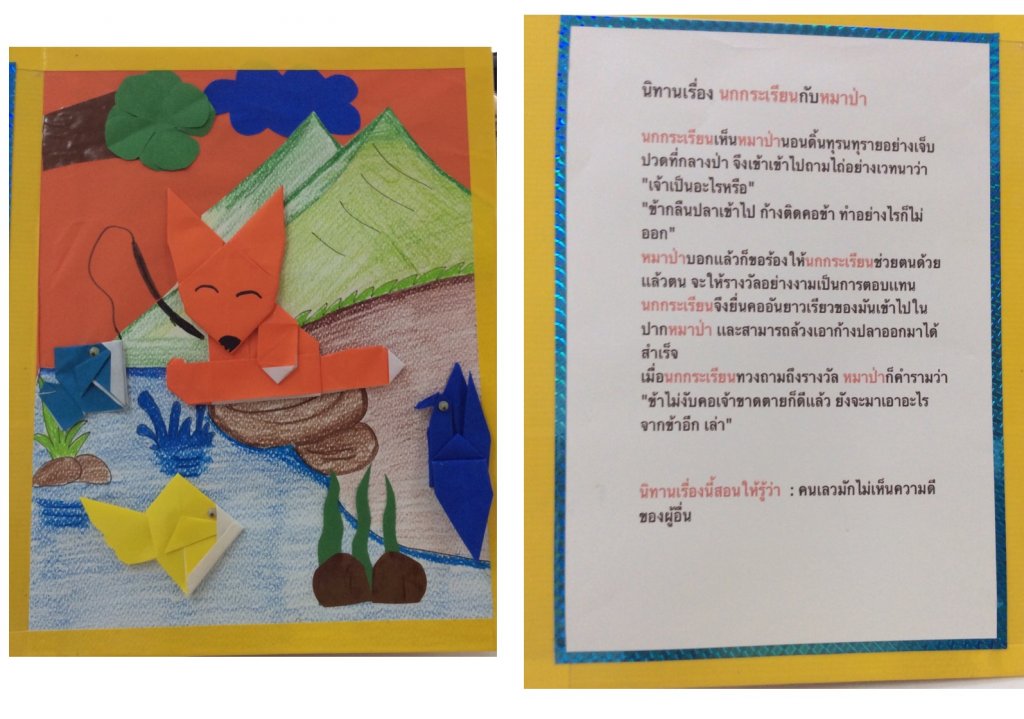 นิทานเรื่อง นกกระเรียนกับหมาป่า
นกกระเรียนเห็นหมาป่านอนดิ้นทุรนทุรายอย่างเจ็บ
ปวดที่กลางป่า จึงเข้าเข้าไปถามไถ่อย่างเวทนาว่า
"เจ้าเป็นอะไรหรือ"
"ข้ากลืนปลาเข้าไป ก้างติดคอข้า ทำอย่างไรก็ไม่
ออก"
หมาป่าบอกแล้วก็ขอร้องให้นกกระเรียนช่วยตนด้วย
แล้วตน จะให้รางวัลอย่างงามเป็นการตอบแทน
นกกระเรียนจึงยื่นคออันยาวเรียวของมันเข้าไปใน
ปากหมาป่า และสามารถล้วงเอาก้างปลาออกมาได้
สำเร็จ
เมื่อนกกระเรียนทวงถามถึงรางวัล หมาป่าก็คำรามว่า
"ข้าไม่งับคอเจ้าขาดตายก็ดีแล้ว ยังจะมาเอาอะไร
จากข้าอีก เล่า"
นิทานเรื่องนี้สอนให้รู้ว่า : คนเลวมักไม่เห็นความดี
ของผู้อื่น